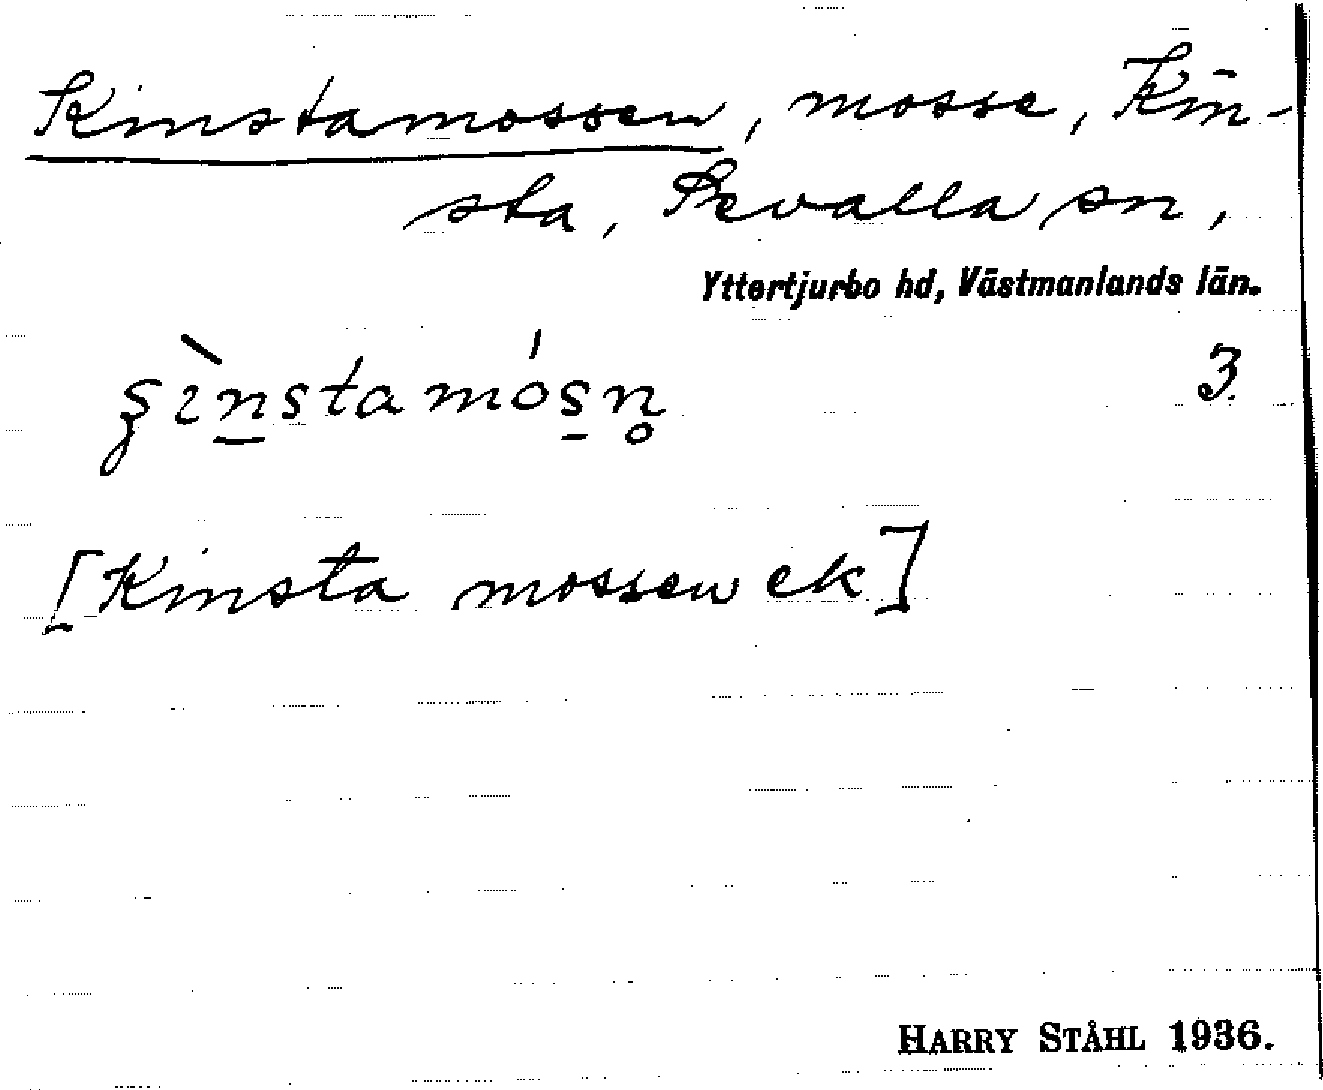 Kinstamossen, mosse, Kin-
sta, Sevalla sn,
Yttertjurbo hd, Västmanlands län.
3.
[Kinsta mossen ek]
HARRY STÅHL 1936.